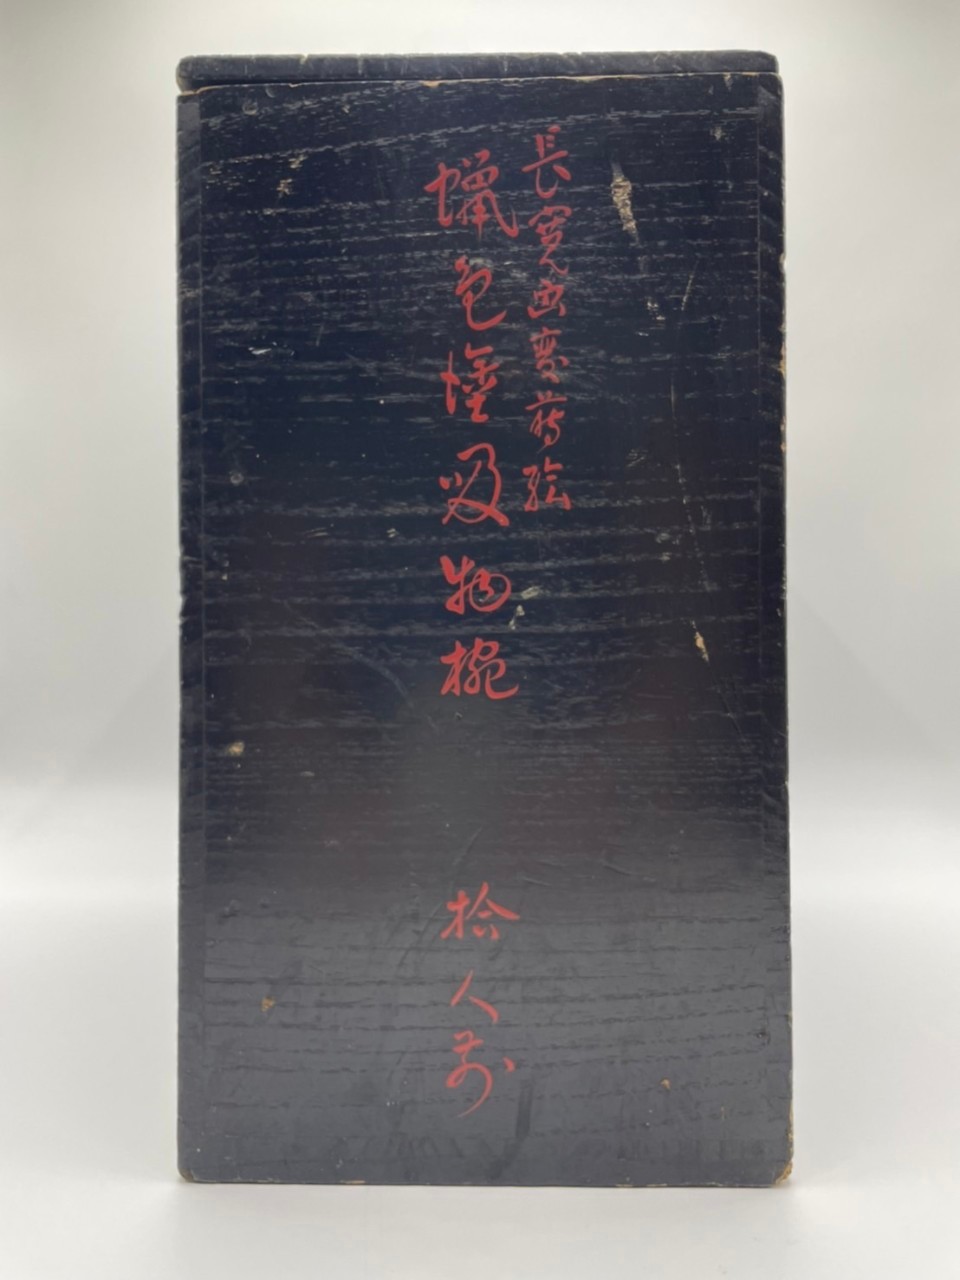 長寛画変蒔絵
蝋色塗吸物椀 拾人前